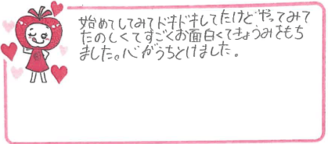 始めてしてみてドキドキしてたけどやってみて
たのしくてすごくお面白くてきょうみをもち
ました。心がうちとけました。